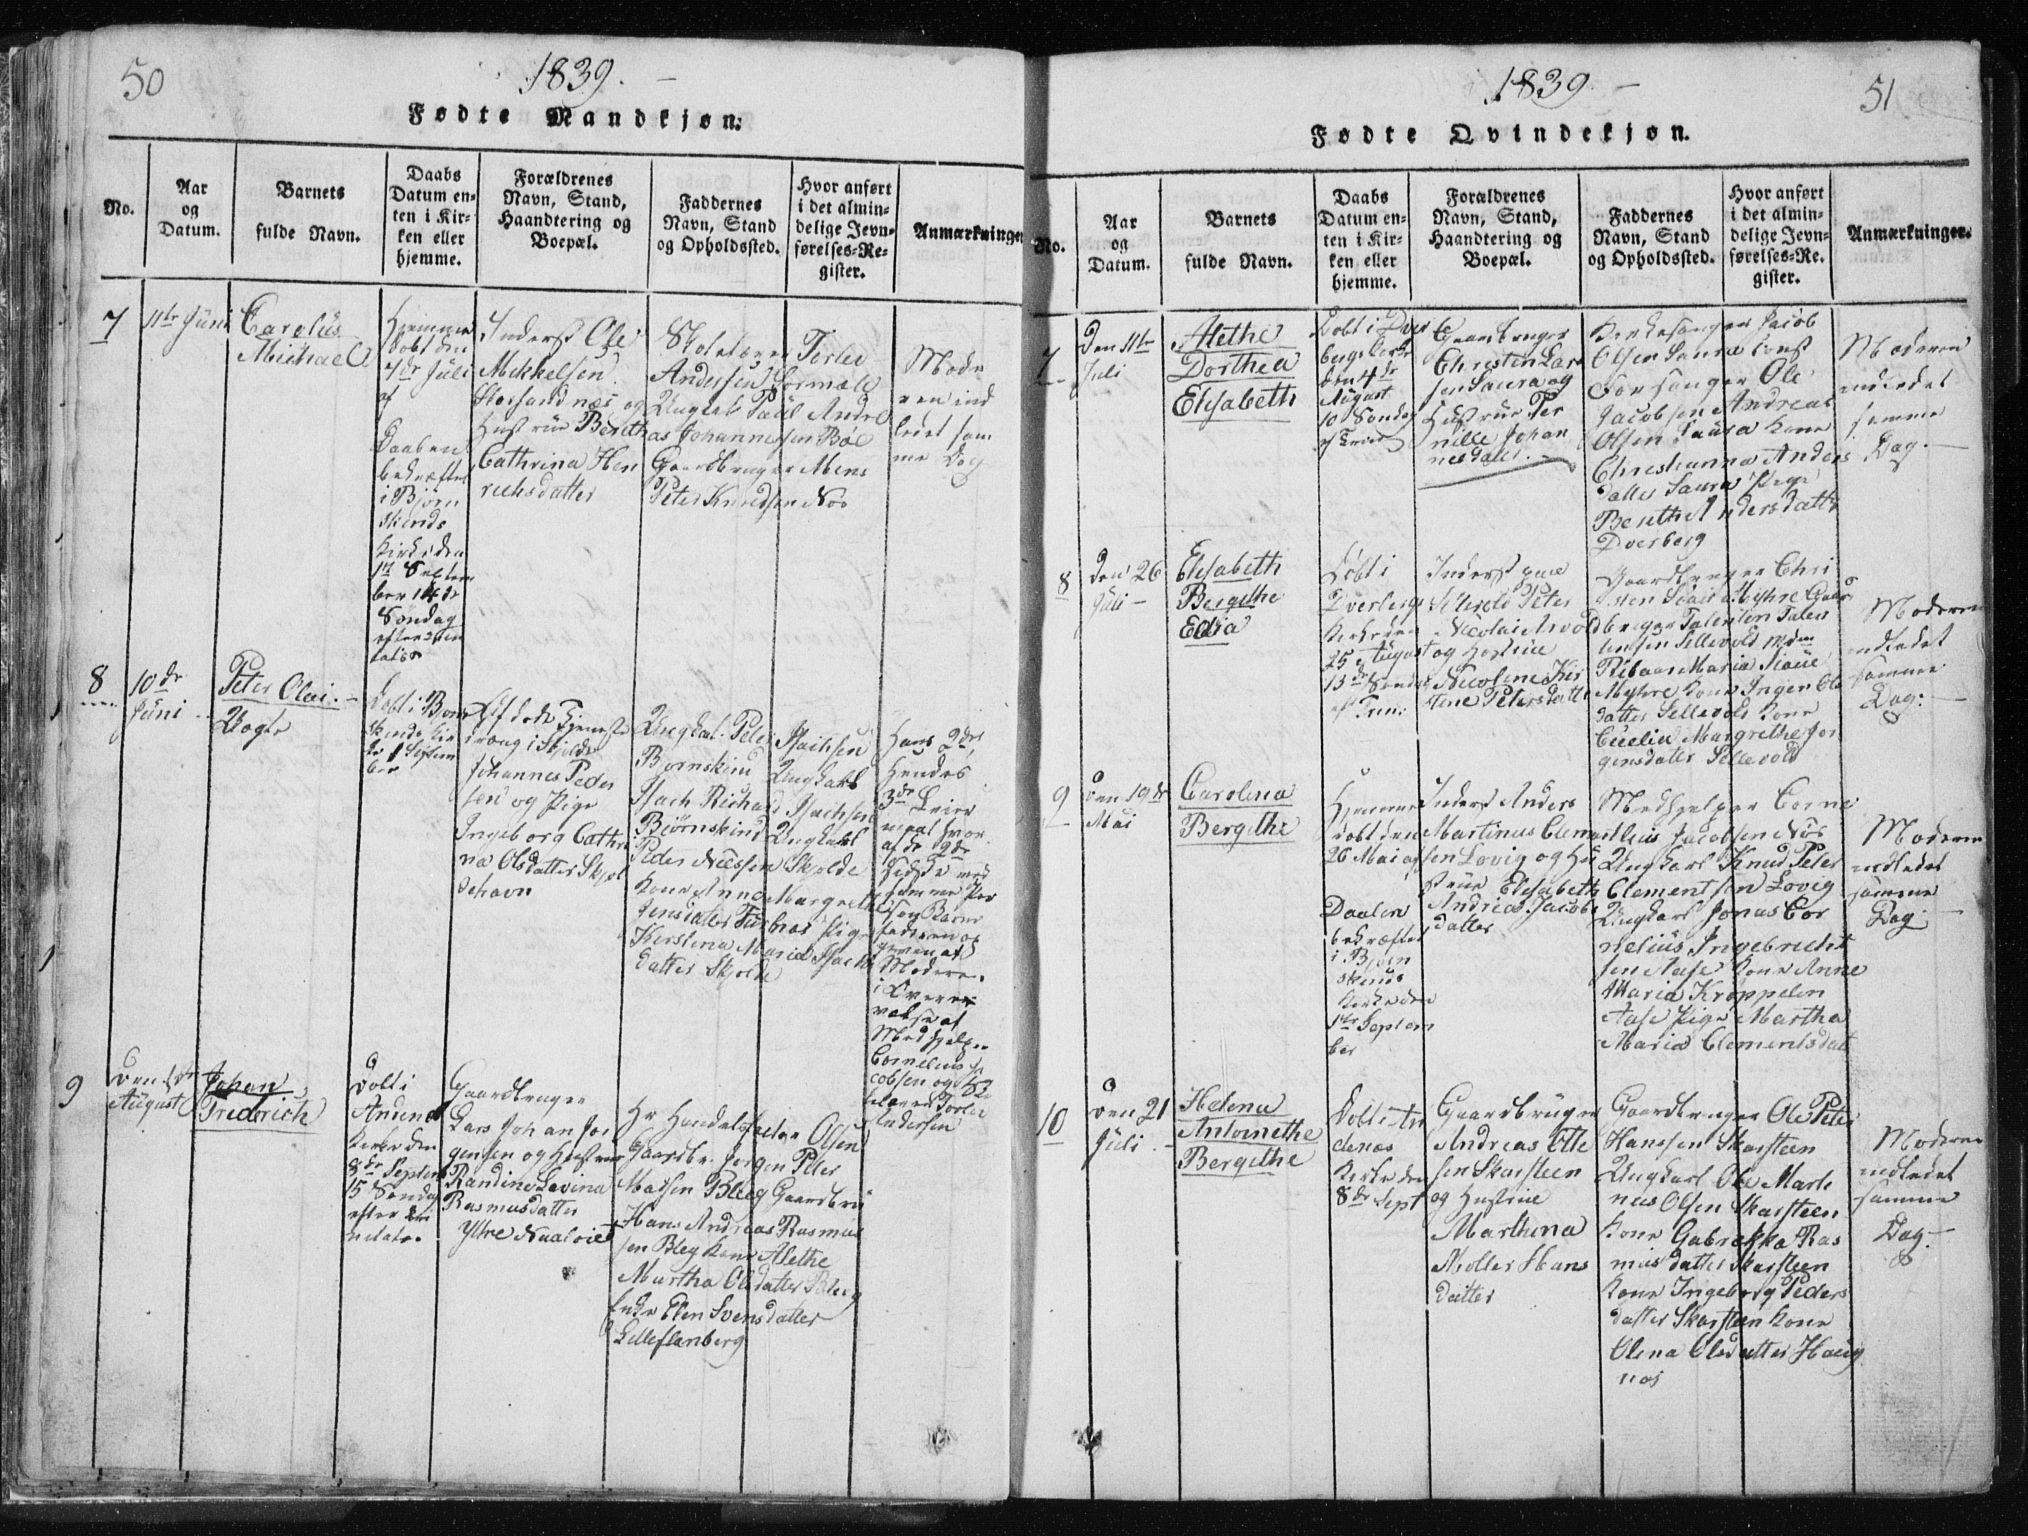 50
1839.
Fødte Mandkjøn.
No.
Aar
og
Datum.
Barnets
fulde Navn.
Daabs
Datum en-
ten i Kir-
ken eller
hjemme.
Forældrenes
Navn, Stand,
Haandtering og
Boepæl.
Faddernes
Navn, Stand
og Opholdssted.
Hvor anført
i det almin-
delige Jevn-
førelses-Re-
gister.
Anmærkninger
7
11te Juni
Carolus
Michael
Hjemme
døbt den
7de Juli
Daaben
bekræftet
i Bjørn
skinds
Kirke den
1ste Septem
ber 14de
Søndag
Inderst Ole
Mikkelsen
og
Hustrue Bereth
Cathrina Hen
richsdatter
Skolelærer Torlei
Andersen
Ungkarl Paul Andre
as Johannessen Bøe
Gaardbruger Mens
Peter Knudsen Nøs
Mode
ren ind
ledet sam
me Dag
8
10de
Juni
Peter Olai
Vogle
Døbt i Bjørn
skinds Kir
ke 1 Septem
ber
Johannes Peder
sen og Pige
Ingeborg Cathri
na Olsdatter Skjol
dehavn
Ungkarl Peter Isachsen
Bjørnskind Ungkarl
Isach Richard Isachsen
Bjørnskind Ungkarl
Peder Nilssen Skjolde
Kone Anne Margrethe
Jensdatter Pige
Kirstina Maria Isachs
datter Skjolde
Hans 2de,
Hendes
3de Leier
maal hvor
af de 2de
sidste med
samme Per
son Barne
faderen op
given af
Moderen
i Overvær
værelse af
Medhjelper
Cornelius Ja
cobsen og Sko
lelærer Torlei
Andersen
9
Den 1ste
August
Johan
Fredrich
Døbt i
Andenes
Kirke den
8de Septem
15 Søndag
efter Tri
nitatis
Gaardbruger
Lars Johan Jør
gensen og Hustrue
Randine Lavina
Rasmusdatter
Ytre
Hr Handelsfactor Olsen
Gaardbr. Jørgen Peter
Matsen Bleeg Gaardbru
Hans Andreas Rasmus
sen Bleg Kone Alethe
Martha Olsdatter Bleeg
Enke Elen Svensdatter
1839
51
Fødte Qvindekjøn.
No.
Aar
og
Datum.
Barnets
fulde Navn.
Daabs
Datum en-
ten i Kir-
ken eller
hjemme.
Forældrenes
Navn, Stand,
Haandtering og
Boepæl.
Faddernes
Navn, Stand
og Opholdssted.
Hvor anført
i det almin-
delige Jevn-
førelses-Re-
gister.
Anmærkninger.
7
Den 11te
Juli
Alethe
Dorthea
Elisabeth
Døbt i Dver
bergs Kirke
den 4de
August
10 Søndag
Gaardbruger
Christen Lars
sen Saura og
Hustrue Per
nille Johan
nesdatter
Kirkesanger Jacob
Olsen Saura
Forsanger Ole
Jacobsen Andreas
Olsen Saura Kone
Christianna Anders
datter Saura Pige
Bereth Andersdatter
Dverberg
Moderen
indledet
samme
Dag.
8
Den 26
Juli
Elisabeth
Bergithe
Edia
Døbt i
Dverbergs
Kirke den
25 August
13de Søndag
ef Trin:
Inderst paa
Sellevold Peter
Nicolai Arvold
og Hustrue
Nicoline Kir
stine Petersdatter
Gaardbruger Chri
sten Myhre Gaard
bruger Talentin Talen
tinsen Sellevold
Maria
Myhre Kone Ingen Ols
datter Sellevold Kone
Cicelia Margrethe Jør
gensdatter Sellevold
Moderen
indledet
samme
Dag:
9
Den 19de
Mai
Carolina
Bergithe
Hjemme
døbt den
26 Mai og
Daaben
bekræftet
i Bjørn
skinds
Kirke den
1ste Septem
ber
Inderst Anders
Martinus Clement
sen Lovig og Hu
strue Elisabeth
Andrea Jacobs
datter
Medhjelper Corne
lius Jacobsen Nøs
Ungkarl Knud Peter
Clementsen Lovig
Ungkarl Jonas Cor
nelius Ingebricht
sen Aase Kone Anne
Maria Krøppelin
Aase Pige Martha
Maria Clementsdat
Moderen
indledet
samme
Dag
10
Den 21
Juli
Helena
Antonethe
Bergithe
Døbt i An
denæs
Kirke den
8de Sept
Gaardbruger
Andreas Otte
sen Skarsteen
og Hustrue
Marthina
Moller Hans
datter
Gaardbruger Ole Peter
Hanssen Skarsteen
Ungkarl Ole Marti
nus Olsen Skarsteen
Kone Gabrekka Ras
musdatter Skarsteen
Kone Ingeborg Peders
datter Skarsteen Kone
Olena Olsdatter Haug
nøs
Moderen
indledet
samme
Dag